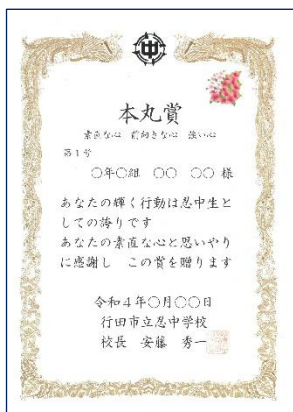 中
本丸賞
素直な心　前向きな心　強い心
第1号
○年○組　○○　○○　様
あなたの輝く行動は忍中生と
しての誇りです
あなたの素直な心と思いやり
に感謝し　この賞を贈ります
令和4年○月○○日
行田市立忍中学校
校長　安藤　秀一